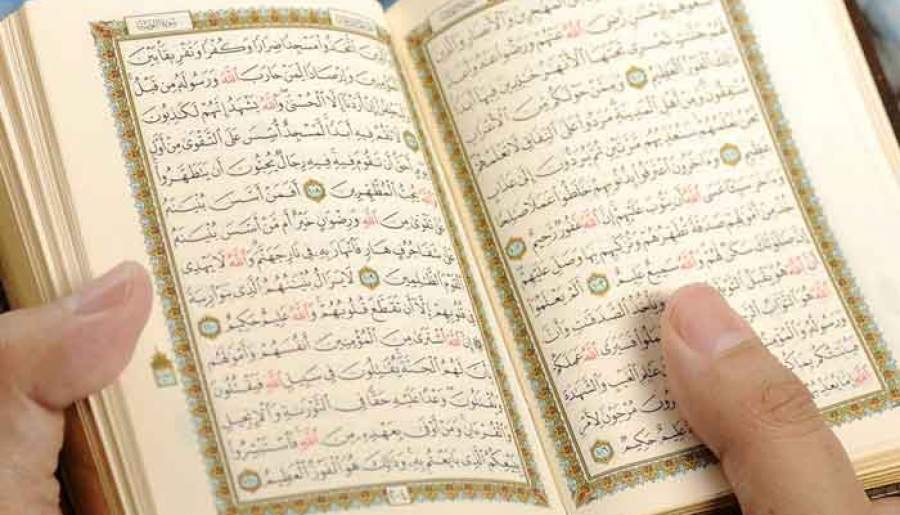 الْمُهَاجِرِينَ وَالْأَنصَارِ وَالَّذِينَ
بِإِحْسَانٍ رَّضِيَ اللَّهُ عَنْهُمْ وَرَضُوا عَنْهُ وَأَعَدَّ
لَهُمْ جَنَّاتٍ تَجْرِي تَحْتَهَا الْأَنْهَارُ خَالِدِينَ فِيهَا أَبَدًا
ذَٰلِكَ الْفَوْزُ الْعَظِيمُ ١٠٠ وَمِمَّنْ حَوْلَكُم مِّنَ الْأَعْرَابِ
مُنَافِقُونَ وَمِنْ أَهْلِ الْمَدِينَةِ مَرَدُوا عَلَى النِّفَاقِ لَا تَعْلَمُهُمْ
نَحْنُ نَعْلَمُهُمْ سَنُعَذِّبُهُم مَّرَّتَيْنِ ثُمَّ يُرَدُّونَ إِلَىٰ عَذَابٍ
عَظِيمٍ ١٠١ وَآخَرُونَ اعْتَرَفُوا بِذُنُوبِهِمْ خَلَطُوا عَمَلًا صَالِحًا
وَآخَرَ سَيِّئًا عَسَى اللَّهُ أَن يَتُوبَ عَلَيْهِمْ إِنَّ اللَّهَ غَفُورٌ رَّحِيمٌ ١٠٢
خُذْ مِنْ أَمْوَالِهِمْ صَدَقَةً تُطَهِّرُهُمْ وَتُزَكِّيهِم بِهَا وَصَلِّ عَلَيْهِمْ
إِنَّ صَلَوٰتَكَ سَكَنٌ لَّهُمْ وَاللَّهُ سَمِيعٌ عَلِيمٌ ١٠٣ أَلَمْ يَعْلَمُوا
أَنَّ اللَّهَ هُوَ يَقْبَلُ التَّوْبَةَ وَيَأْخُذُ الصَّدَقَاتِ وَأَنَّ
اللَّهَ هُوَ التَّوَّابُ اعْمَلُوا فَسَيَرَى اللَّهُ عَمَلَكُمْ
وَرَسُولُهُ وَالْمُؤْمِنُونَ عَالِمِ الْغَيْبِ وَالشَّهَادَةِ
فَيُنَبِّئُكُم بِمَا مُرْجَوْنَ لِأَمْرِ
اللَّهِ إِمَّا عَلِيمٌ حَكِيمٌ ١٠٦
سُورَةُ التَّوْبَةِ
اتَّخَذُوا مَسْجِدًا ضِرَارًا وَكُفْرًا وَتَفْرِيقًا بَيْنَ
الْمُؤْمِنِينَ وَإِرْصَادًا لِّمَنْ حَارَبَ اللَّهَ وَرَسُولَهُ مِن قَبْلُ
وَلَيَحْلِفُنَّ إِنْ أَرَدْنَا إِلَّا الْحُسْنَىٰ وَاللَّهُ يَشْهَدُ إِنَّهُمْ لَكَاذِبُونَ ١٠٧
لَا تَقُمْ فِيهِ أَبَدًا لَّمَسْجِدٌ أُسِّسَ عَلَى التَّقْوَىٰ مِنْ أَوَّلِ
يَوْمٍ أَحَقُّ أَن تَقُومَ فِيهِ فِيهِ رِجَالٌ يُحِبُّونَ أَن يَتَطَهَّرُوا
وَاللَّهُ يُحِبُّ الْمُطَّهِّرِينَ ١٠٨ أَفَمَنْ أَسَّسَ بُنْيَانَهُ
عَلَىٰ تَقْوَىٰ مِنَ اللَّهِ وَرِضْوَانٍ خَيْرٌ أَم مَّنْ أَسَّسَ بُنْيَانَهُ
عَلَىٰ شَفَا جُرُفٍ هَارٍ فَانْهَارَ بِهِ فِي نَارِ جَهَنَّمَ وَاللَّهُ لَا يَهْدِي
الْقَوْمَ الظَّالِمِينَ ١٠٩ لَا يَزَالُ بُنْيَانُهُمُ الَّذِي بَنَوْا رِيبَةً
فِي قُلُوبِهِمْ إِلَّا أَن تَقَطَّعَ قُلُوبُهُمْ وَاللَّهُ عَلِيمٌ حَكِيمٌ ١١٠
إِنَّ اللَّهَ اشْتَرَىٰ مِنَ الْمُؤْمِنِينَ أَنفُسَهُمْ وَأَمْوَالَهُم
بِأَنَّ لَهُمُ الْجَنَّةَ يُقَاتِلُونَ فِي سَبِيلِ اللَّهِ فَيَقْتُلُونَ
وَيُقْتَلُونَ وَعْدًا عَلَيْهِ حَقًّا فِي التَّوْرَاةِ وَالْإِنجِيلِ
وَالْقُرْآنِ وَمَنْ أَوْفَىٰ بِعَهْدِهِ مِنَ اللَّهِ فَاسْتَبْشِرُوا
بِبَيْعِكُمُ الَّذِي بَايَعْتُم بِهِ وَذَٰلِكَ هُوَ الْفَوْزُ الْعَظِيمُ ١١١
٢٠٤